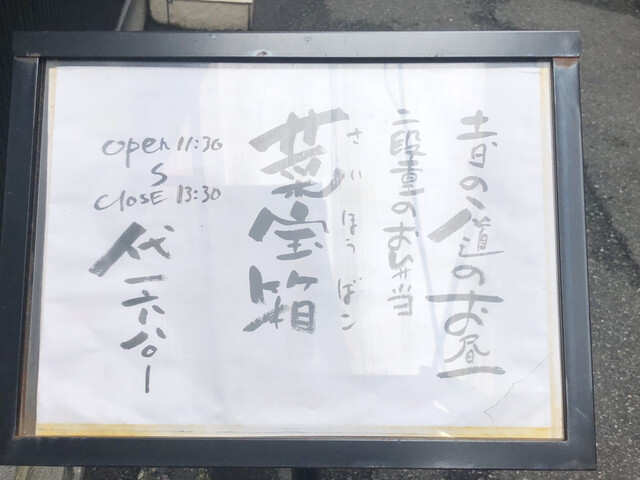 の道のお昼
二段重のお弁当
さいほうばこ
菜宝箱
open 11:30
〜
close 13:30
代一六八〇ー